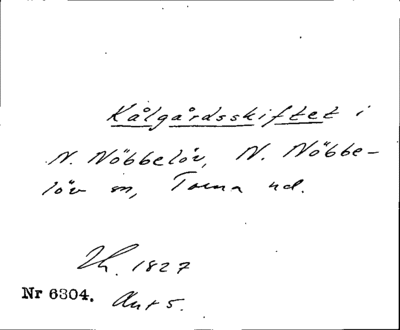 Kålgårdsskiftet i
N. Nöbbelöv, N. Nöbbe-
löv sn, Torna hd.
Lh. 1827
Nr 6304. Ant 5.